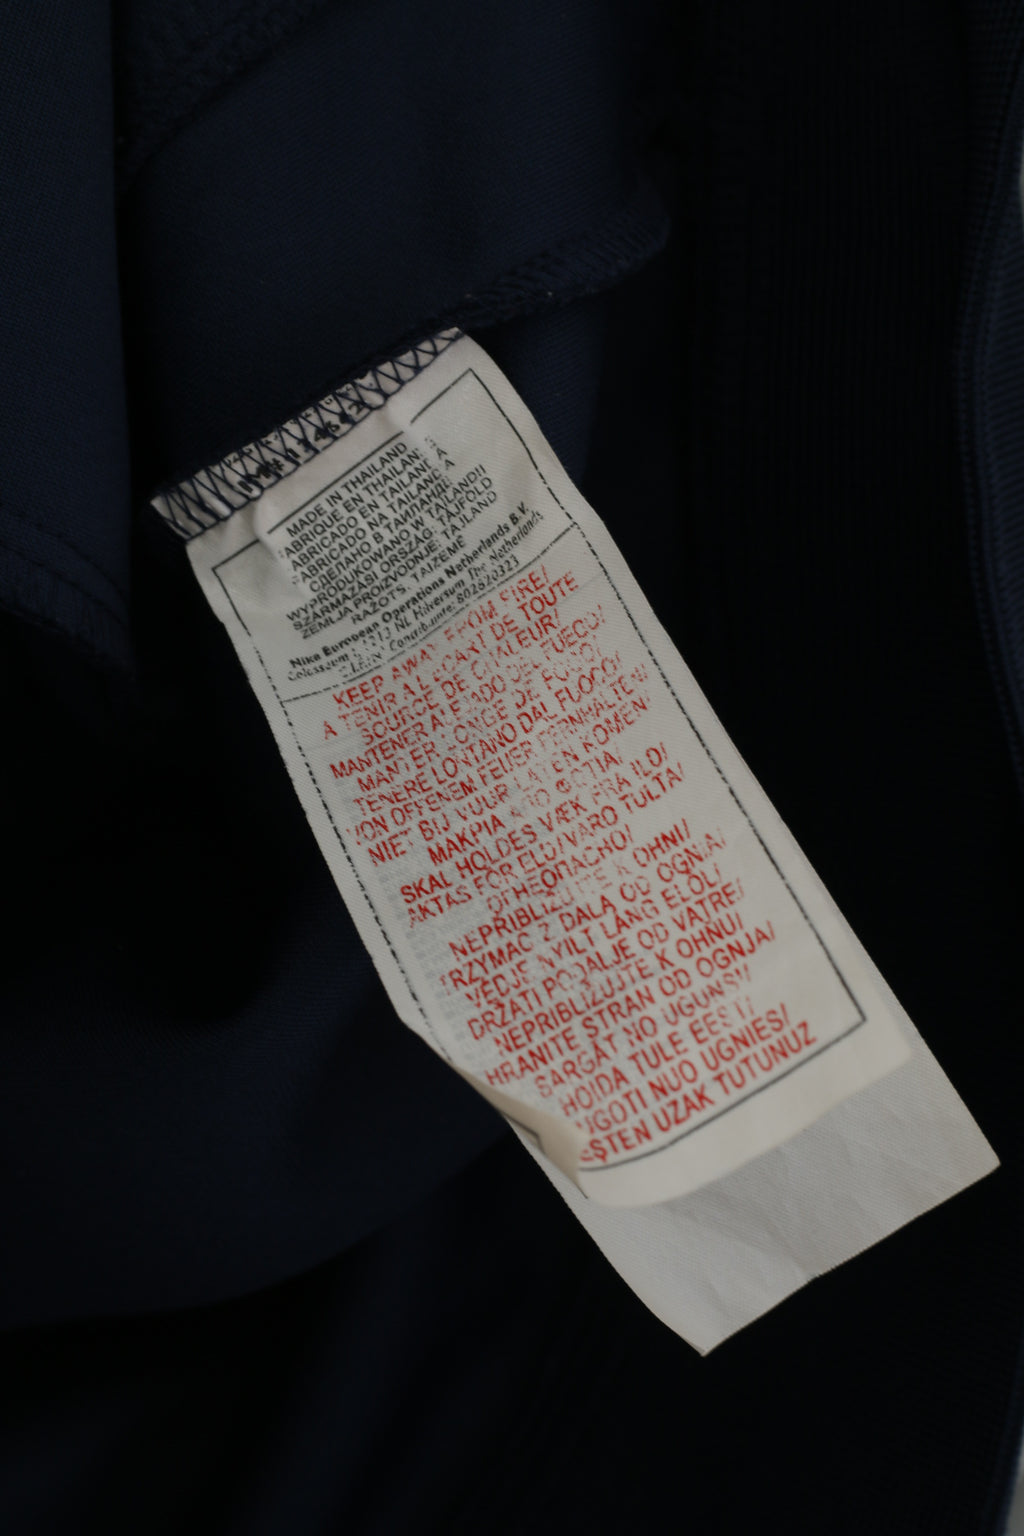 MADE IN THAILAND
FABRIQUE EN THAILANDE
FABRICADO EN TAILANDIA
FABRICADO NA TAILANDIA
СДЕЛАНО В ТАИЛАНДЕ
WYPRODUKOWANO W TAJLANDII
SZÁRMAZÁSI ORSZÁG: TAJFÖLD
ZEMLJA PROIZVODNJE: TAJLAND
RAŽOTS: TAIZEMĒ
Nike European Operations Netherlands B.V.
Colosseum 1, 1213 NL Hilversum The Netherlands
Contribuinte: 802820323
KEEP AWAY FROM FIRE/
A TENIR A L'ECART DE TOUTE
SOURCE DE CHALEUR/
MANTENER ALEJADO DEL FUEGO/
MANTER LONGE DE FOGO/
TENERE LONTANO DAL FUOCO/
VON OFFENEM FEUER FERNHALTEN/
NIET BIJ VUUR LATEN KOMEN/
ΜΑΚΡΙΑ ΑΠΟ ΦΩΤΙΑ/
SKAL HOLDES VÆK FRA ILD/
AKTAS FÖR ELD/VARO TULTA/
ОГНЕОПАСНО/
NEPRIBLIZUJTE K OHNI/
TRZYMAC Z DALA OD OGNIA/
VÉDJE NYILT LÁNG ELŐL/
DRŽATI PODALJE OD VATRE/
NEPRIBLIŽUJTE K OHŇU/
HRANITE STRAN OD OGNJA/
SARGĀT NO UGUNS/
HOIDA TULE EEST/
SAUGOTI NUO UGNIES/
ATEŞTEN UZAK TUTUNUZ